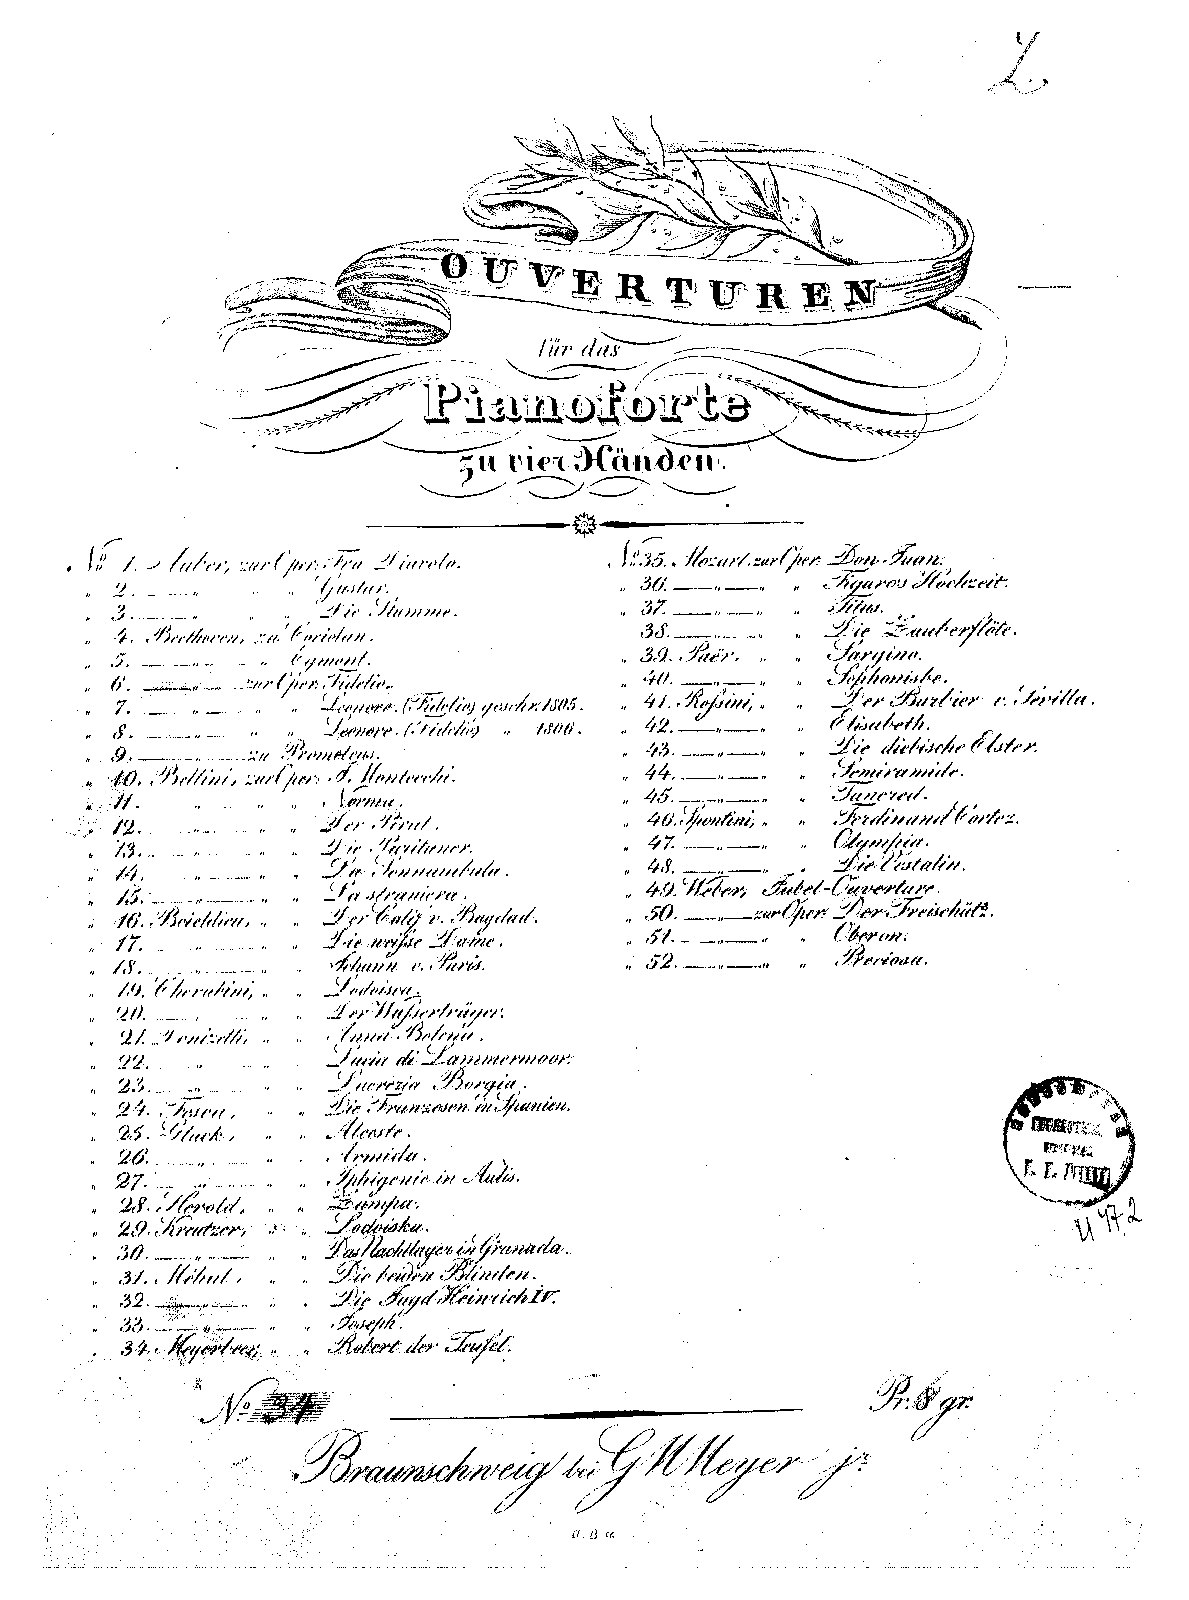 OUVERTUREN
für das
Pianoforte
zu vier Händen.
No. 1. Auber, zur Oper: Fra Diavolo.
" 2. — " — " " Gustav.
" 3. — " — " " Die Stumme.
" 4. Beethoven, zu Coriolan.
" 5. — " — " Egmont.
" 6. — " — zur Oper: Fidelio.
" 7. — " — " " Leonore. (Fidelio) geschr. 1805.
" 8. — " — " " Leonore. (Fidelio) " 1806.
" 9. — " — zu Prometeus.
" 10. Bellini, zur Oper: I. Montecchi.
" 11. " " " Norma.
" 12. — " — " " Der Pirat.
" 13. — " — " " Die Puritaner.
" 14. — " — " " La Sonnambula.
" 15. — " — " " La straniera.
" 16. Boieldieu, " " Der Calif v. Bagdad.
" 17. — " — " " Die weiſse Dame.
" 18. — " — " " Johann v. Paris.
" 19. Cherubini, " " Lodoisca.
" 20. — " — " " Der Waſserträger.
" 21. Donizetti, " " Anna Bolena.
" 22. — " — " " Lucia di Lammermoor.
" 23. — " — " " Lucrezia Borgia.
" 24. Fesca, " " Die Franzosen in Spanien.
" 25. Gluck, " " Alceste.
" 26. — " — " " Armida.
" 27. — " — " " Iphigenie in Aulis.
" 28. Herold, " " Zampa.
" 29. Kreutzer, " " Lodoiska.
" 30. — " — " " Das Nachtlager in Granada.
" 31. Méhul, " " Die beiden Blinden.
" 32. — " — " " Die Jagd Heinrich IV.
" 33. — " — " " Joseph.
" 34. Meyerbeer, " " Robert der Teufel.
No. 35. Mozart, zur Oper: Don Juan.
" 36. — " — " " Figaros Hochzeit.
" 37. — " — " " Titus.
38. — " — " " Die Zauberflöte.
" 39. Paër. " " Sargino.
" 40. — " — " Sophonisbe.
" 41. Roſsini, " " Der Barbier v. Sevilla.
" 42. — " — " " Elisabeth.
" 43. — " — " " Die diebische Elster.
" 44. — " — " " Semiramide.
" 45. — " — " " Tancred.
" 46. Spontini, " " Ferdinand Cortez.
" 47. — " — " " Olympia.
" 48. — " — " " Die Vestalin.
" 49. Weber, Jubel-Ouverture.
" 50. — " — zur Oper: Der Freischütz.
" 51. — " — " " Oberon.
" 52. — " — " " Preciosa.
No. 34
Pr. 8 gr.
Braunschweig bei G M Meyer jr.